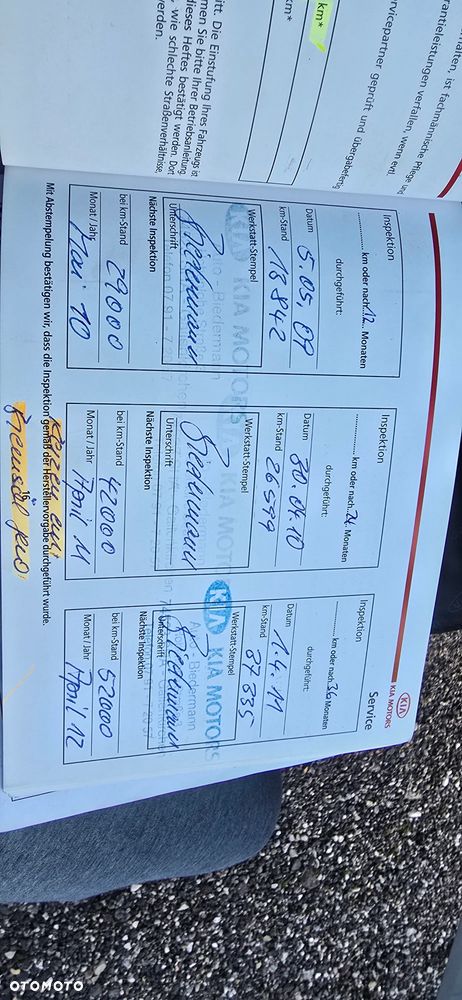 KIA
KIA MOTORS
Service
Inspektion
km oder nach 12 Monaten
durchgeführt:
Datum 15.05.09
km-Stand 18842
Werkstatt-Stempel
KIA MOTORS
Auto - Biedermann
Unterschrift
Biedermann
Nächste Inspektion
bei km-Stand 29000
Monat / Jahr Mai 10
Inspektion
km oder nach 24 Monaten
durchgeführt:
Datum 30.04.10
km-Stand 26599
Werkstatt-Stempel
KIA MOTORS
Unterschrift
Biedermann
Nächste Inspektion
bei km-Stand 42000
Monat / Jahr April 11
Inspektion
km oder nach 36 Monaten
durchgeführt:
Datum 1.4.11
km-Stand 37835
Werkstatt-Stempel
KIA KIA MOTORS
Auto - Biedermann
Unterschrift
Biedermann
Nächste Inspektion
bei km-Stand 52000
Monat / Jahr April 12
Mit Abstempelung bestätigen wir, dass die Inspektion gemäß der Herstellervorgabe durchgeführt wurde.
halten, ist fachmännische Pflege und
rantieleistungen verfallen, wenn evtl
rvicepartner geprüft und übergabefertig
km*
km*
itt. Die Einstufung Ihres Fahrzeugs ist
men Sie bitte Ihrer Betriebsanleitung
dieses Heftes bestätigt werden. Dort
, wie schlechte Straßenverhältnisse,
werden.
OTOMOTO